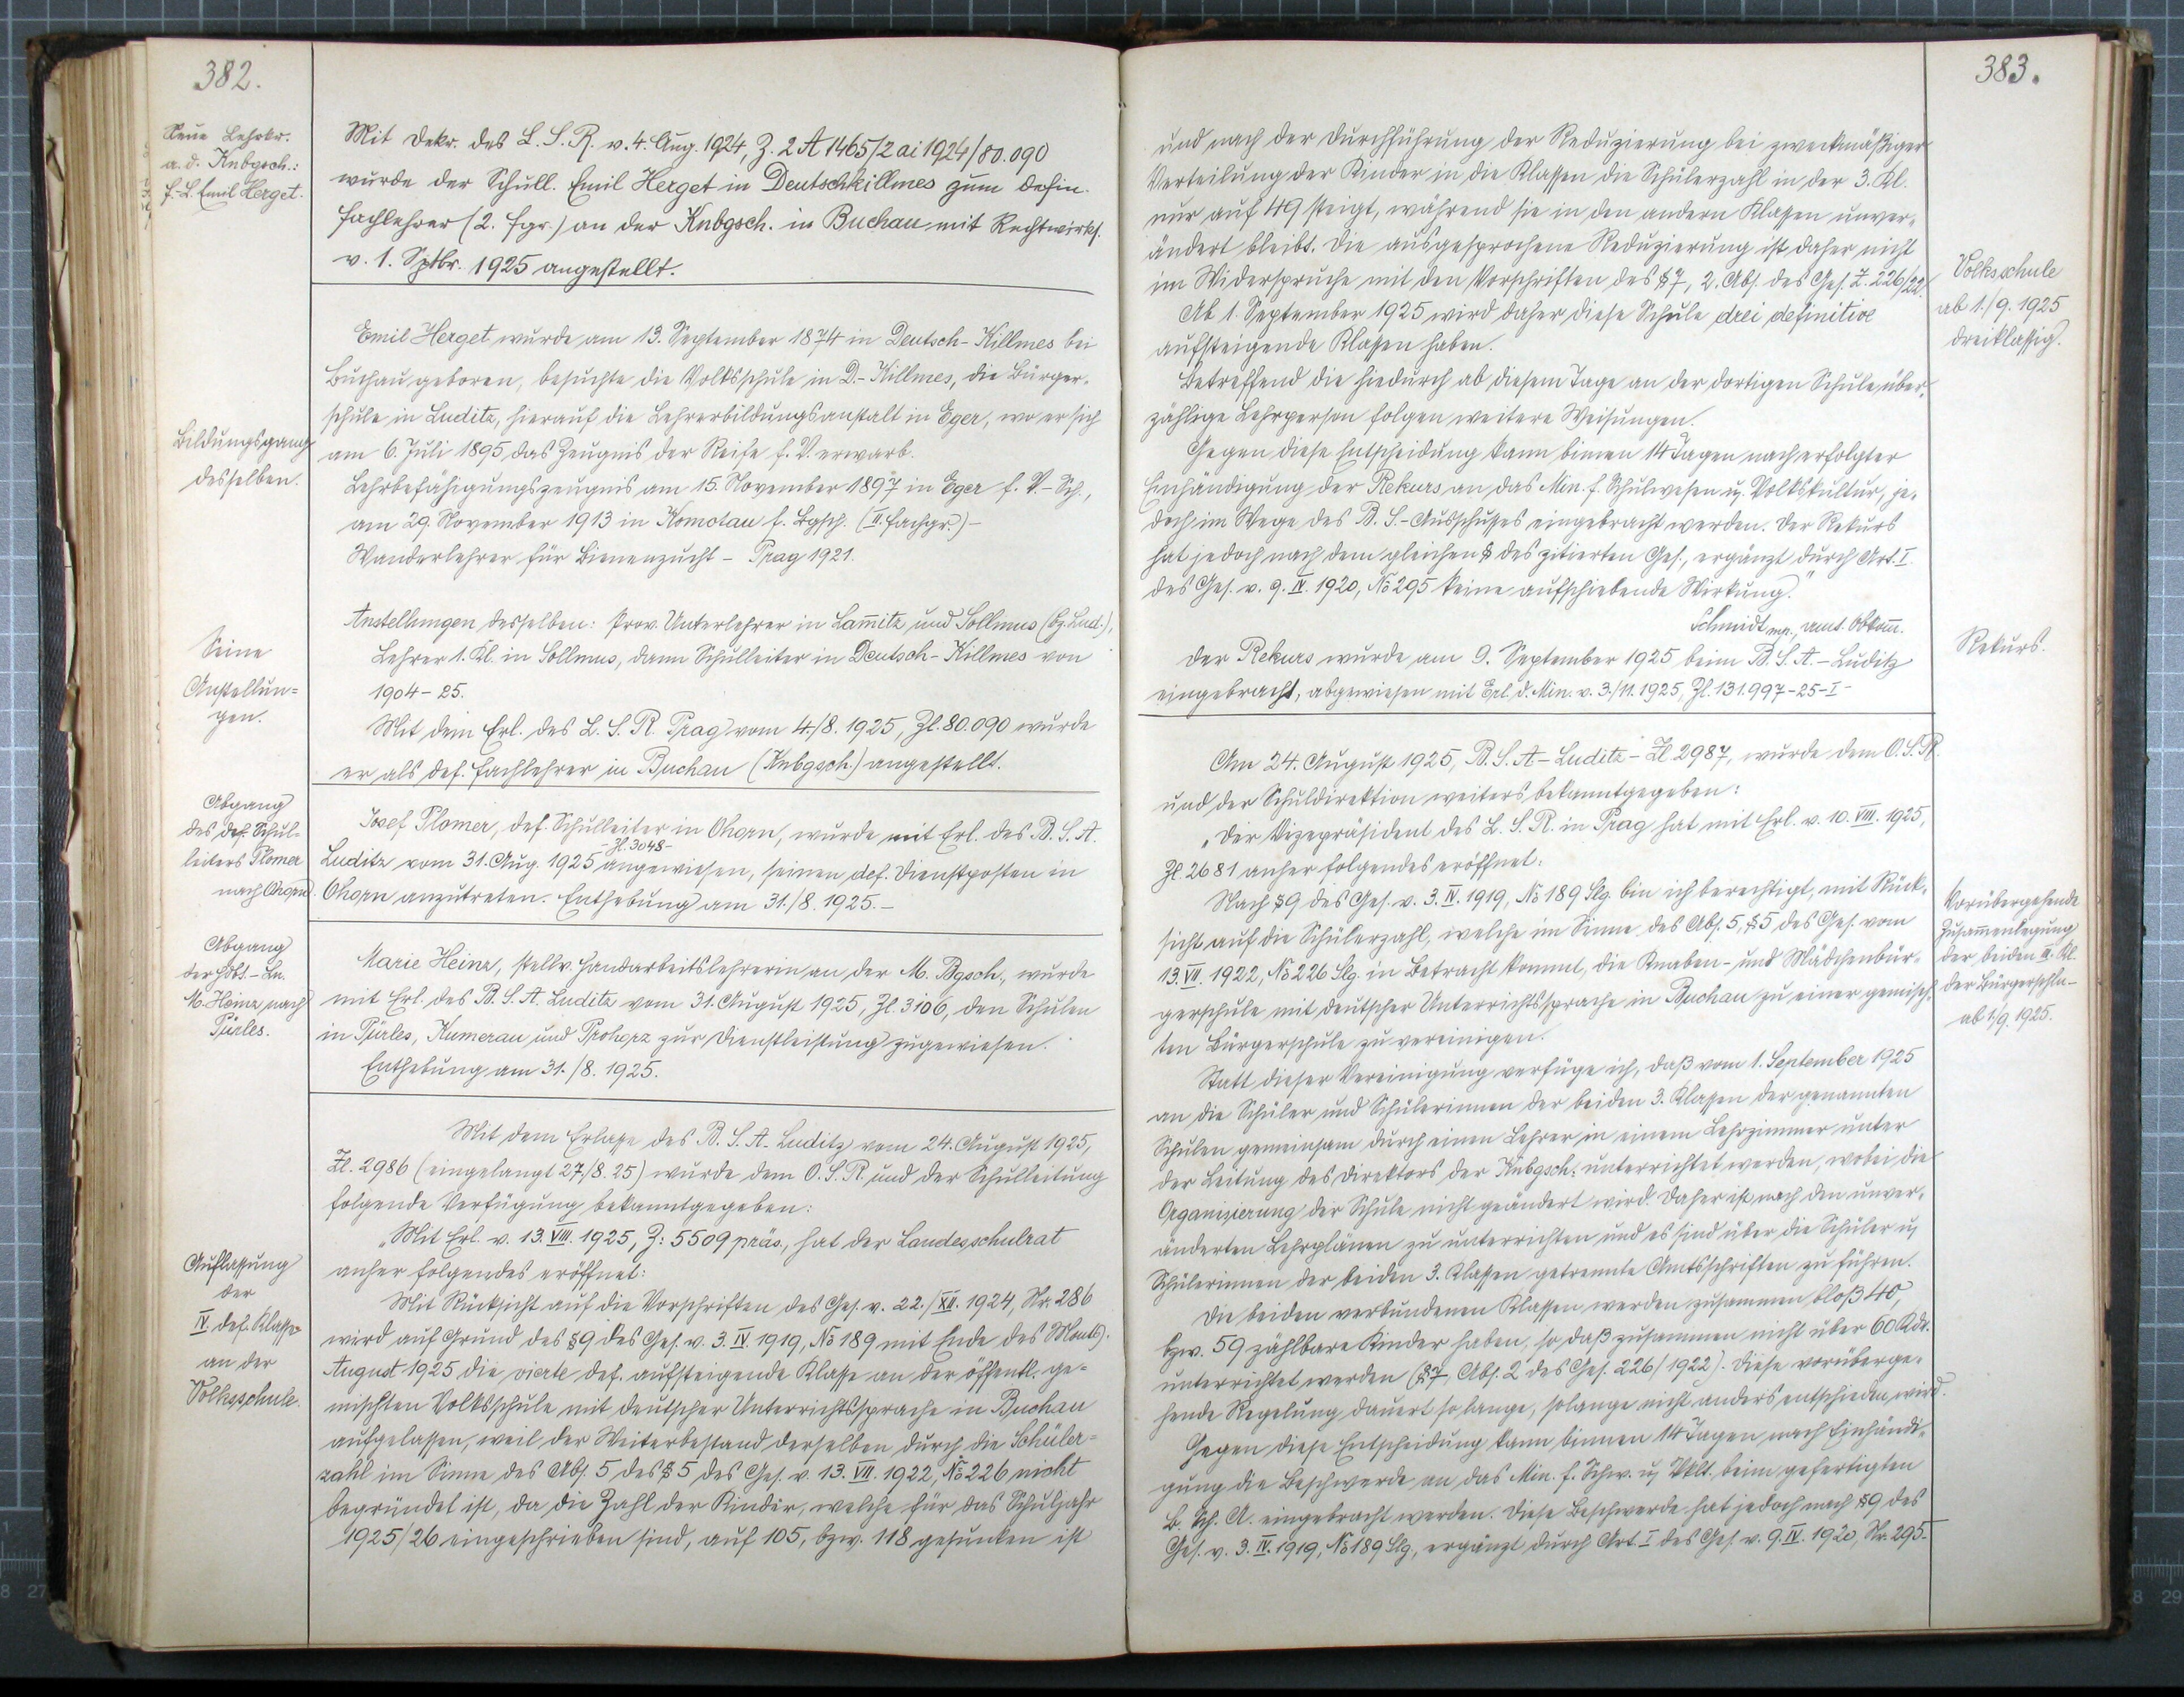 382.
Neue Lehrkr.
a. d. Knbgsch.:
F.-L. Emil Herget.
Mit Dekr. des L. S. R. v. 4. Aug. 1924, Z. 2 A 1465/2 ai 1924/80.090
wurde der Schull. Emil Herget in Deutschkillmes zum defin.
Fachlehrer (2. Fgr.) an der Knbgsch. in Buchau mit Rechtwirks.
v. 1. Sptbr. 1925 angestellt.
Emil Herget wurde am 13. September 1874 in Deutsch-Killmes bei
Buchau geboren, besuchte die Volksschule in D.-Killmes, die Bürger-
schule in Luditz, hierauf die Lehrerbildungsanstalt in Eger, wo er sich
Bildungsgang
desselben.
am 6. Juli 1895 das Zeugnis der Reife f. V. erwarb.
Lehrbefähigungszeugnis am 15. November 1897 in Eger f. V.-Sch.,
am 29. November 1913 in Komotau f. Bgsch. (II. Fachgr.)-
Wanderlehrer für Bienenzucht - Prag 1921.
Seine
Anstellun=
gen.
Anstellungen desselben: Prov. Unterlehrer in Lam̄itz und Sollmus (Bz. Lud.),
Lehrer 1. Kl. in Sollmus, dann Schulleiter in Deutsch-Killmes von
1904-25.
Mit dem Erl. des L. S. R. Prag vom 4./8. 1925, Zl. 80.090 wurde
er als def. Fachlehrer in Buchau (Knbgsch.) angestellt.
Abgang
des def. Schul=
leiters Plomer
nach Chorn.
Josef Plomer, def. Schulleiter in Ohorn, wurde mit Erl. des B. S. A.
Luditz vom 31. Aug. 1925 -Zl. 3048- angewiesen, seinen def. Dienstposten in
Ohorn anzutreten. Enthebung am 31./8. 1925.-
Abgang
der Hdbt.-Ln.
M. Heinz nach
Pürles.
Marie Heinz, stellv. Handarbeitslehrerin an der M. Bgsch., wurde
mit Erl. des B. S. A. Luditz vom 31. August 1925, Zl. 3106, den Schulen
in Pürles, Kumerau und Prohorz zur Dienstleistung zugewiesen.
Enthebung am 31./8. 1925.
Mit dem Erlasse des B. S. A. Luditz vom 24. August 1925,
Zl. 2986 (eingelangt 27./8. 25) wurde dem O. S. R. und der Schulleitung
folgende Verfügung bekanntgegeben:
Auflassung
der
IV. def. Klasse
an der
Volksschule.
„Mit Erl. v. 13. VIII. 1925, Z: 5509 präs., hat der Landesschulrat
anher folgendes eröffnet:
Mit Rücksicht auf die Vorschriften des Ges. v. 22./XII. 1924, Nr. 286
wird auf Grund des §9 des Ges. v. 3. IV. 1919, No 189 mit Ende des Monts).
August 1925 die vierte def. aufsteigende Klasse an der öffentl. ge=
mischten Volksschule mit deutscher Unterrichtssprache in Buchau
aufgelassen, weil der Weiterbestand derselben durch die Schüler=
zahl im Sinne des Abs. 5 des § 5 des Ges. v. 13. VII. 1922, No 226 nicht
begründet ist, da die Zahl der Kinder, welche für das Schuljahr
1925/26 eingeschrieben sind, auf 105, bzw. 118 gesunken ist
383.
und nach der Durchführung der Reduzierung bei zweckmäßiger
Verteilung der Kinder in die Klassen die Schülerzahl in der 3. Kl.
nur auf 49 steigt, während sie in den andern Klassen unver-
ändert bleibt. Die ausgesprochene Reduzierung ist daher nicht
im Widerspruche mit den Vorschriften des § 7, 2. Abs. des Ges. Z. 226/22.
Volksschule
ab 1./9. 1925
dreiklassig.
Ab 1. September 1925 wird daher diese Schule drei definitive
aufsteigende Klassen haben.
Betreffend die hiedurch ab diesem Tage an der dortigen Schule über-
zählige Lehrperson folgen weitere Weisungen.
Gegen diese Entscheidung kann binnen 14 Tagen nach erfolgter
Einhändigung der Rekurs an das Min. f. Schulwesen u. Volkskultur, je-
doch im Wege des B. S.-Ausschusses eingebracht werden. Der Rekurs
hat jedoch nach dem gleichen § des zitierten Ges., ergänzt durch Art. I
des Ges. v. 9. IV. 1920, No 295 keine aufschiebende Wirkung."
Schmidt mp., amt. Obkom̄.
Rekurs.
Der Rekurs wurde am 9. September 1925 beim B. S. A.-Luditz
eingebracht, abgewiesen mit Erl. d. Min. v. 3./11. 1925, Zl. 131.997-25-I-
Am 24. August 1925, B. S. A-Luditz-Zl. 2987, wurde dem O. S. R.
und der Schuldirektion weiters bekanntgegeben:
„Der Vizepräsident des L. S. R. in Prag hat mit Erl. v. 10. VIII. 1925,
Zl. 2681 anher folgendes eröffnet:
Vorübergehende
Zusam̄enlegung
der beiden III. Kl.
der Bürgerschln-
ab 1./9. 1925.
Nach § 9 des Ges. v. 3. IV. 1919, No 189 Slg. bin ich berechtigt, mit Rück-
sicht auf die Schülerzahl, welche im Sinne des Abs. 5, § 5 des Ges. vom
13. VII. 1922, No 226 Slg. in Betracht kommt, die Knaben- und Mädchenbür-
gerschule mit deutscher Unterrichtssprache in Buchau zu einer gemisch-
ten Bürgerschule zu vereinigen.
Statt dieser Vereinigung verfüge ich, daß vom 1. September 1925
an die Schüler und Schülerinnen der beiden 3. Klassen der genannten
Schulen gemeinsam durch einen Lehrer in einem Lehrzimmer unter
der Leitung des Direktors der Knbgsch. unterrichtet werden, wobei die
Organisierung der Schule nicht geändert wird. Daher ist nach den unver-
änderten Lehrplänen zu unterrichten und es sind über die Schüler u.
Schülerinnen der beiden 3. Klassen getrennte Amtsschriften zu führen.
Die beiden verbundenen Klassen werden zusammen bloß 40,
bzw. 59 zählbare Kinder haben, so daß zusammen nicht über 60 Kdr.
unterrichtet werden (§ 7, Abs. 2 des Ges. 226/1922). Diese vorüberge-
hende Regelung dauert so lange, solange nicht anders entschieden wird.
Gegen diese Entscheidung kann binnen 14 Tagen nach Einhändi-
gung die Beschwerde an das Min. f. Schw. u. Vklt. beim gefertigten
B. Sch. A. eingebracht werden. Diese Beschwerde hat jedoch nach § 9 des
Ges. v. 3. IV. 1919, No 189 Slg., ergänzt durch Art. I des Ges. v. 9. IV. 1920, Nr. 295-